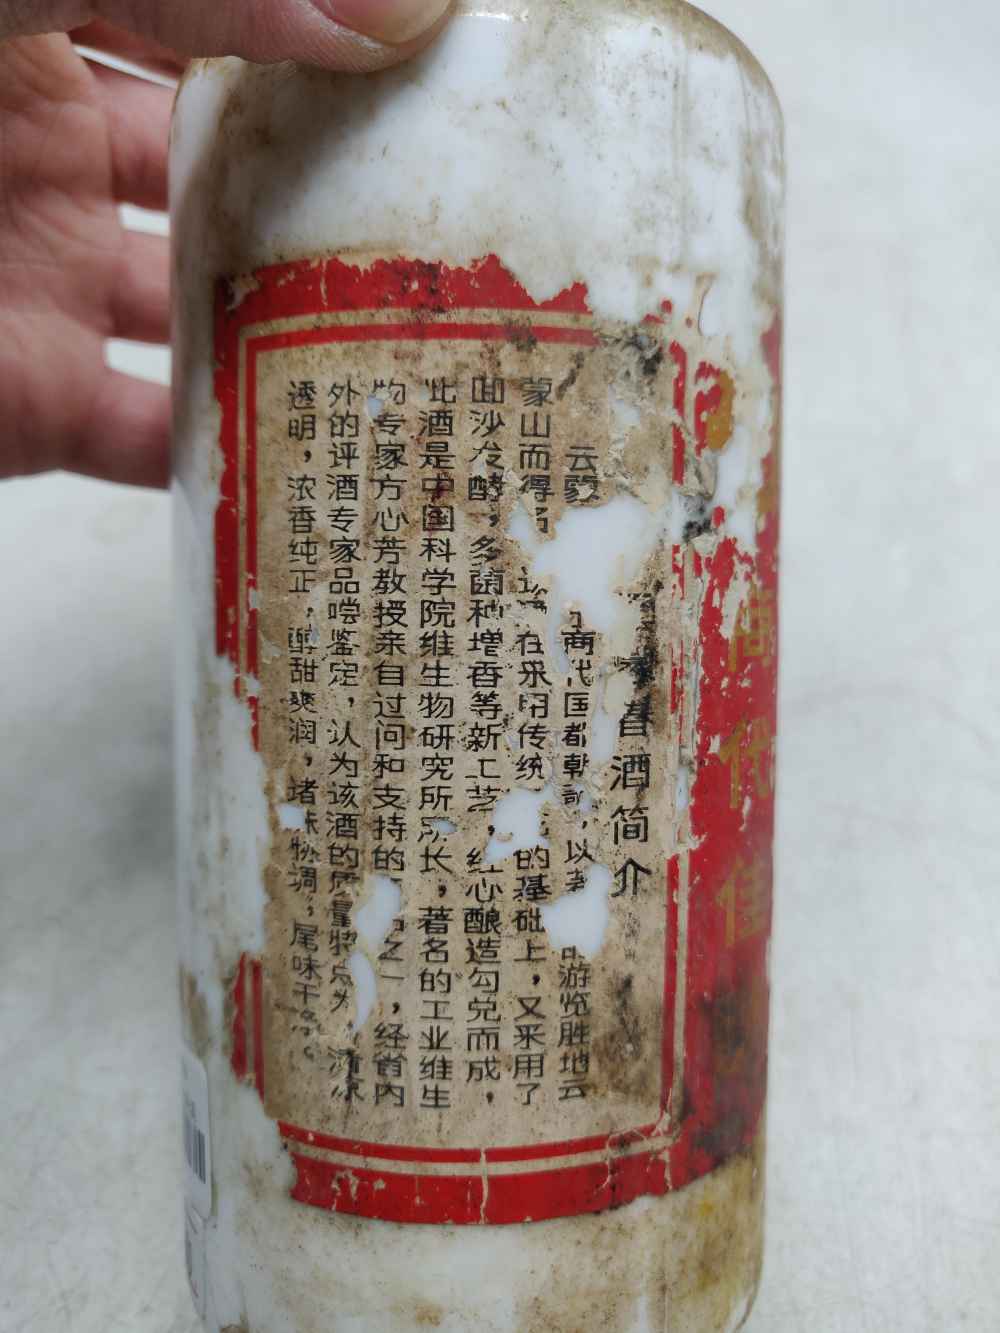 商代佳
酒简介
商代国都朝歌,以
游览胜地云
蒙山而得
在采用传统
的基础上,又采用了
曲沙发酵,多菌种增香等新工艺,经心酿造勾兑而成,
此酒是中国科学院维生物研究所
长,著名的工业维生
物专家方心芳教授亲自过问和支持的
之一,经省内
外的评酒专家品尝鉴定,认为该酒的质量特点为,清凉
透明,浓香纯正,醇甜爽润,诸味协调,尾味干净。